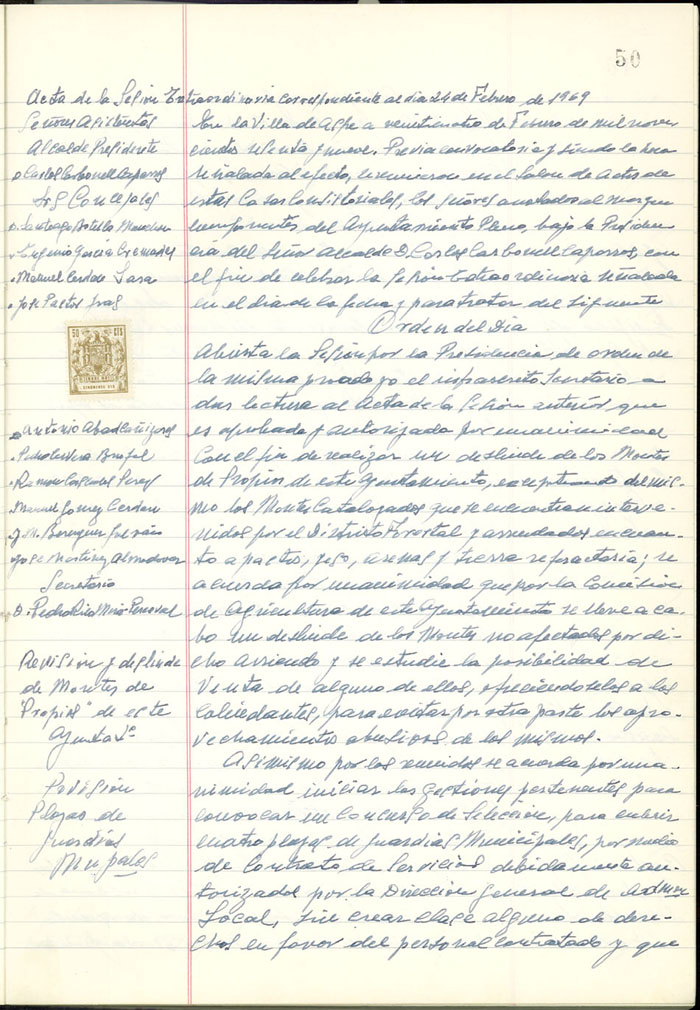 50
Acta de la Sesión Extraordinaria correspondiente al dia 24 de Febrero de 1969
Señores Asistentes
Alcalde Presidente
D. Carlos Carbonell Caparros
Srs Concejales
D. Santiago Botella
" Eugenio García Cremades
" Manuel Cerdá Sara
" Jose Pastor
50 CTS
" Antonio Abad Cañizares
" Ramon
" Manuel Gomez Cerdan
J. M. Berenguer
Jose Martinez Almodovar
Secretario
D. Pedro
Revision y deslinde
de Montes de
"Propios" de este
Ayuntaº
Provisión
Plazas de
Guardias
Mupales
En la Villa de Aspe a veinticuatro de Febrero de mil nove-
cientos sesenta y nueve. Previa convocatoria y siendo la hora
señalada al efecto, se reunieron en el Salon de Actos de
estas Casas Consistoriales, los señores anotados al margen
componentes del Ayuntamiento Pleno, bajo la Presiden-
cia del Señor Alcalde D. Carlos Carbonell Caparros, con
el fin de celebrar la Sesión Extraordinaria señalada
en el dia de la fecha y para tratar del siguiente
Orden del Dia
Abierta la Sesión por la Presidencia, de orden de
la misma procedo yo el infrascrito Secretario a
dar lectura al Acta de la Sesión anterior que
es aprobada y autorizada por unanimidad
Con el fin de realizar un deslinde de los Montes
de Propios de este Ayuntamiento, exceptuando del mis-
mo los Montes Catalogados que se encuentran interve-
nidos por el Distrito Forestal y arrendados en cuan-
to a pastos, yeso, arenas y tierra refractaria; se
acuerda por unanimidad que por la Comisión
de Agricultura de este Ayuntamiento se lleve a ca-
bo un deslinde de los Montes no afectados por di-
cho arriendo y se estudie la posibilidad de
Venta de alguno de ellos, ofreciendoselos a los
colindantes, para evitar por otra parte los apro-
vechamientos abusivos de los mismos.
Asimismo por los reunidos se acuerda por una-
nimidad iniciar las gestiones pertenentes para
convocar un Concurso de Selección, para cubrir
cuatro plazas de Guardias Municipales, por medio
de Contrato de Servicios debidamente au-
torizados por la Direccion General de Admon
Local, sin crear clase alguna de dere-
chos en favor del personal contratado y que